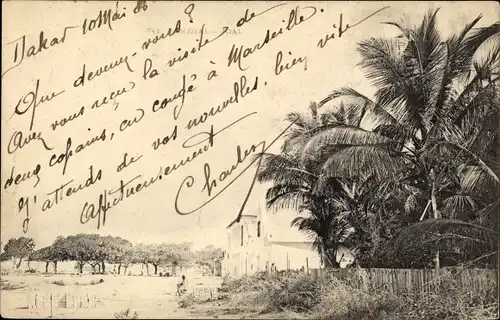 SÉNÉGAL - JOAL
Dakar 10 Mai 06
Que devenez-vous ?
Avez vous reçu la visite de
deux copains, en congé à Marseille.
J'attends de vos nouvelles, bien vite
Affectueusement
Charles